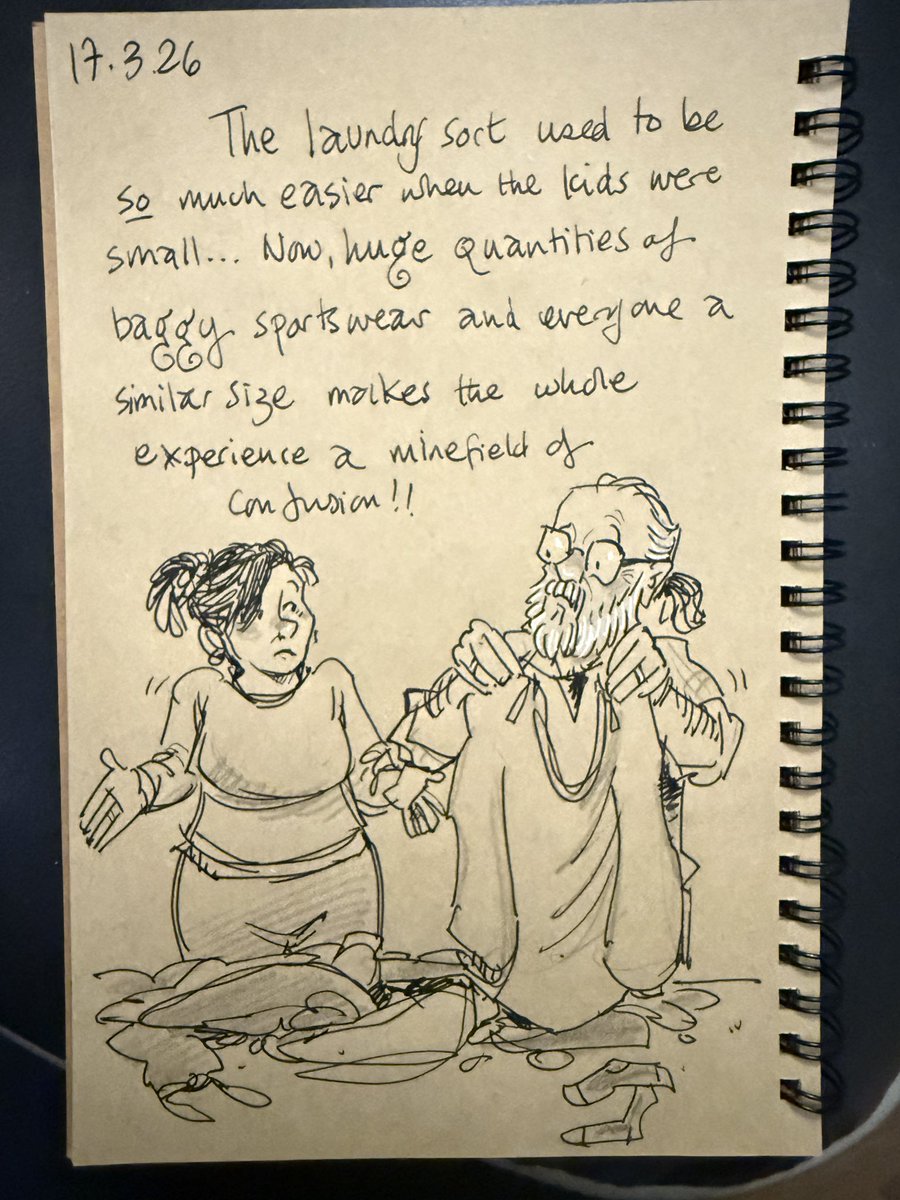 17.3.26
The laundry sort used to be
so much easier when the kids were
small... Now, huge quantities of
baggy sportswear and everyone a
similar size makes the whole
experience a minefield of
confusion!!